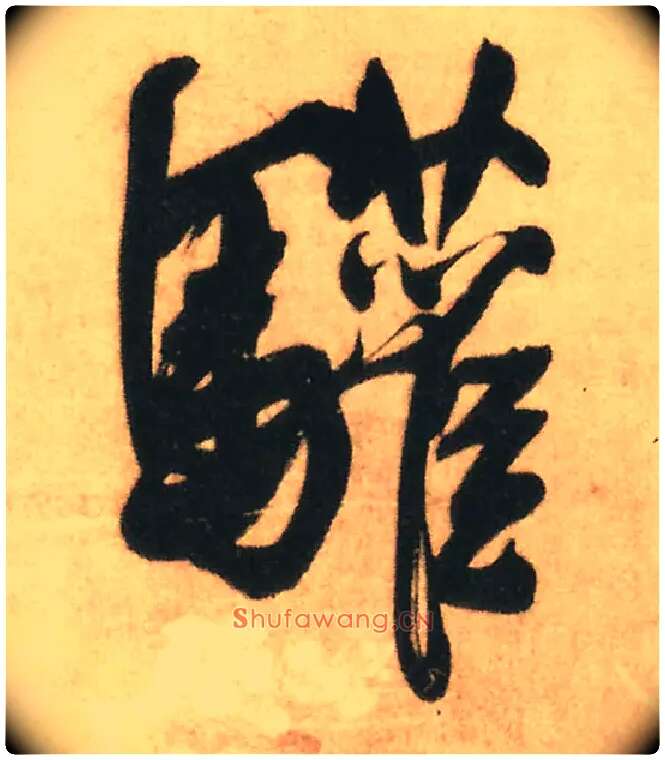 驩
Shufawang.CN